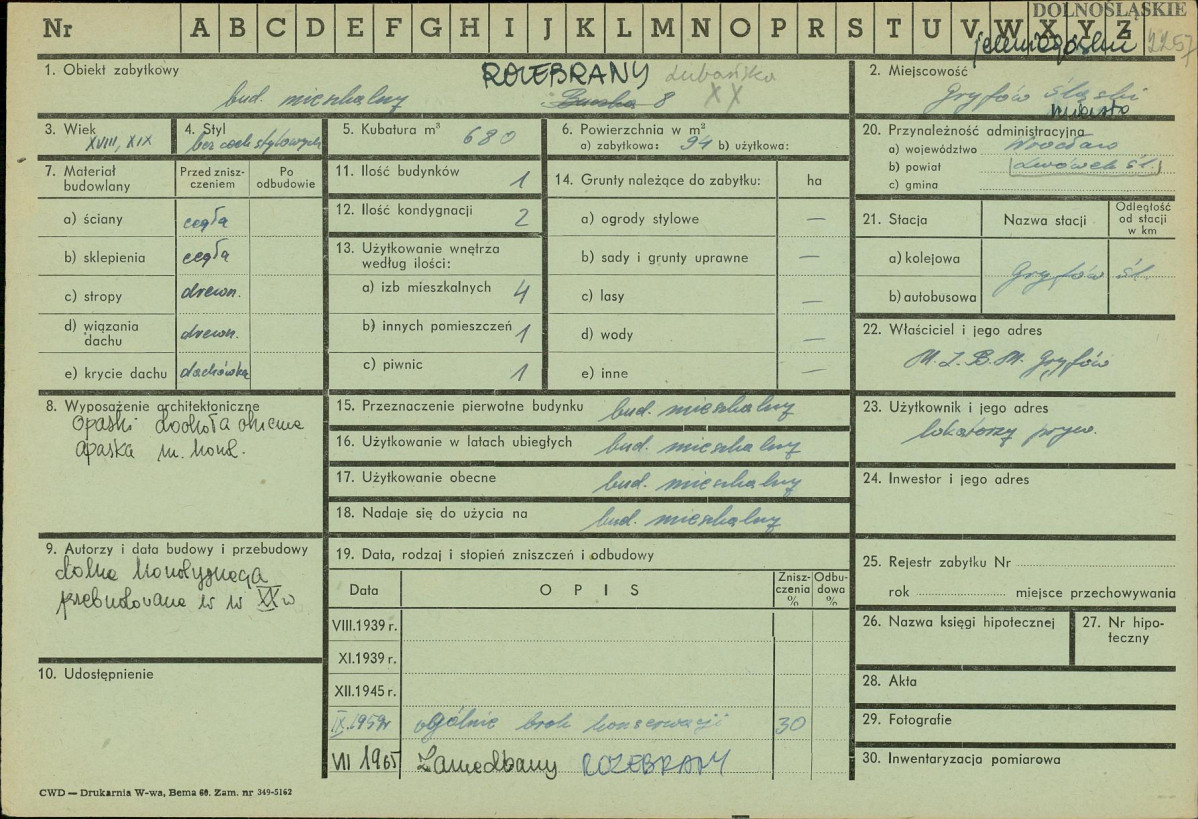 DOLNOŚLĄSKIE
Nr A B C D E F G H I J K L M N O P R S T U V W X Y Z
2257
1. Obiekt zabytkowy
ROZEBRANY Lubańska
bud. mieszkalny 8 XX
2. Miejscowość
Gryfów Śląski
miasto
3. Wiek
XVIII, XIX
4. Styl
bez cech stylowych
5. Kubatura m³ 680
6. Powierzchnia w m²
a) zabytkowa: 94 b) użytkowa:
20. Przynależność administracyjna
a) województwo Wrocław
b) powiat Lwówek Śl.
c) gmina
7. Materiał budowlany
Przed zniszczeniem
Po odbudowie
a) ściany cegła
b) sklepienia cegła
c) stropy drewn.
d) wiązania dachu drewn.
e) krycie dachu dachówka
11. Ilość budynków 1
12. Ilość kondygnacji 2
13. Użytkowanie wnętrza według ilości:
a) izb mieszkalnych 4
b) innych pomieszczeń 1
c) piwnic 1
14. Grunty należące do zabytku: ha
a) ogrody stylowe —
b) sady i grunty uprawne —
c) lasy —
d) wody —
e) inne —
21. Stacja
Nazwa stacji
Odległość od stacji w km
a) kolejowa
Gryfów Śl.
b) autobusowa
22. Właściciel i jego adres
M.Z.B.M. Gryfów
8. Wyposażenie architektoniczne
Opaski dookoła okienne
opaska m. kond.
15. Przeznaczenie pierwotne budynku bud. mieszkalny
16. Użytkowanie w latach ubiegłych bud. mieszkalny
17. Użytkowanie obecne bud. mieszkalny
18. Nadaje się do użycia na bud. mieszkalny
23. Użytkownik i jego adres
lokatorzy pryw.
24. Inwestor i jego adres
9. Autorzy i data budowy i przebudowy
dolna kondygnacja
przebudowana w XX w
19. Data, rodzaj i stopień zniszczeń i odbudowy
Data OPIS Zniszczenia % Odbudowa %
VIII.1939 r.
XI.1939 r.
XII.1945 r.
IX.1959r ogólnie brak konserwacji 30
VII 1965 Zaniedbany ROZEBRANY
25. Rejestr zabytku Nr
rok miejsce przechowywania
26. Nazwa księgi hipotecznej
27. Nr hipoteczny
10. Udostępnienie
28. Akta
29. Fotografie
30. Inwentaryzacja pomiarowa
CWD — Drukarnia W-wa, Bema 60. Zam. nr 349-5162